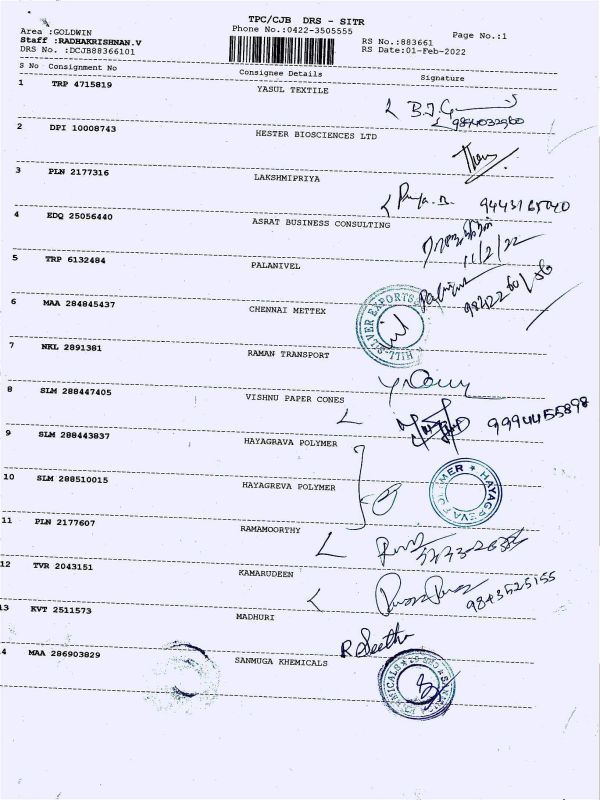 TPC/CJB DRS - SITR
Area :GOLDWIN Phone No.:0422-3505555 Page No.:1
Staff :RADHAKRISHNAN.V RS No.:883661
DRS No. :DCJB88366101 RS Date:01-Feb-2022
S No Consignment No Consignee Details Signature
1 TRP 4715819 YASUL TEXTILE
2 DPI 10008743 HESTER BIOSCIENCES LTD
3 PLN 2177316 LAKSHMIPRIYA
4 EDQ 25056440 ASRAT BUSINESS CONSULTING
11/2/22
5 TRP 6132484 PALANIVEL
6 MAA 284845437 CHENNAI METTEX
HILL-SILVER EXPORTS
7 NKL 2891381 RAMAN TRANSPORT
8 SLM 288447405 VISHNU PAPER CONES
9994455898
9 SLM 288443837 HAYAGRAVA POLYMER
10 SLM 288510015 HAYAGREVA POLYMER
HAYAGREVA
11 PLN 2177607 RAMAMOORTHY
12 TVR 2043151 KAMARUDEEN
9843525155
13 KVT 2511573 MADHURI
R. Seetha
4 MAA 286903829 SANMUGA KHEMICALS